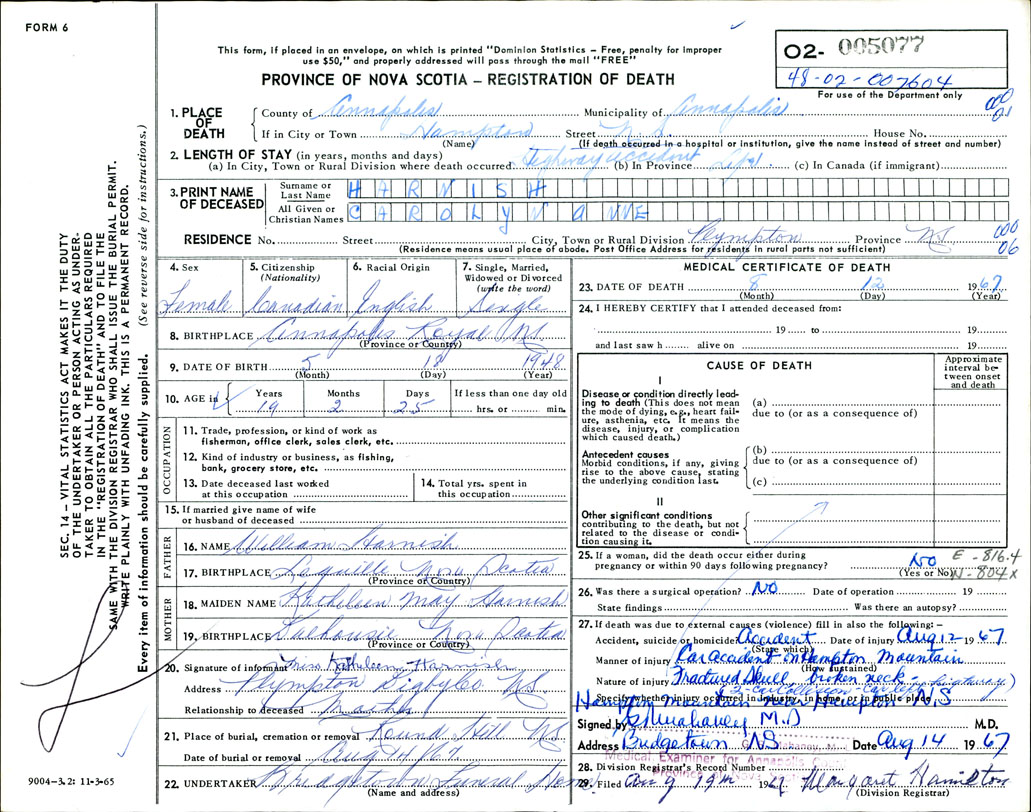 FORM 6
This form, if placed in an envelope, on which is printed "Dominion Statistics – Free, penalty for improper
use $50," and properly addressed will pass through the mail "FREE"
PROVINCE OF NOVA SCOTIA – REGISTRATION OF DEATH
O2- 005077
48-02-007604
For use of the Department only
1. PLACE OF DEATH
County of Annapolis Municipality of Annapolis
If in City or Town Hampton Street N.S. House No.
(Name) (If death occurred in a hospital or institution, give the name instead of street and number)
000
01
2. LENGTH OF STAY (in years, months and days)
(a) In City, Town or Rural Division where death occurred Highway accident (b) In Province (c) In Canada (if immigrant)
3. PRINT NAME OF DECEASED
Surname or Last Name HARNISH
All Given or Christian Names CAROLYN ANNE
RESIDENCE No. Street City, Town or Rural Division Plympton Province N.S.
(Residence means usual place of abode. Post Office Address for residents in rural parts not sufficient)
000
06
4. Sex
Female
5. Citizenship (Nationality)
Canadian
6. Racial Origin
English
7. Single, Married, Widowed or Divorced (write the word)
Single
8. BIRTHPLACE Annapolis Royal NS
(Province or Country)
9. DATE OF BIRTH 5 18 1948
(Month) (Day) (Year)
10. AGE in
Years Months Days If less than one day old
19 2 25 hrs. or min.
OCCUPATION
11. Trade, profession, or kind of work as
fisherman, office clerk, sales clerk, etc.
12. Kind of industry or business, as fishing,
bank, grocery store, etc.
13. Date deceased last worked
at this occupation
14. Total yrs. spent in
this occupation
15. If married give name of wife
or husband of deceased
FATHER
16. NAME William Harnish
17. BIRTHPLACE Lequille Nova Scotia
(Province or Country)
MOTHER
18. MAIDEN NAME Kathleen May Harnish
19. BIRTHPLACE Dalhousie Nova Scotia
(Province or Country)
20. Signature of informant Miss Kathleen Harnish
Address Plympton Digby Co NS
Relationship to deceased Mother
21. Place of burial, cremation or removal Round Hill NS
Date of burial or removal Aug 14/67
22. UNDERTAKER Bridgetown Funeral Home
(Name and address)
MEDICAL CERTIFICATE OF DEATH
23. DATE OF DEATH 8 12 1967
(Month) (Day) (Year)
24. I HEREBY CERTIFY that I attended deceased from:
19 to 19
and last saw h alive on 19
CAUSE OF DEATH
Approximate interval between onset and death
I
Disease or condition directly leading to death (This does not mean the mode of dying, e.g., heart failure, asthenia, etc. It means the disease, injury, or complication which caused death.)
(a)
due to (or as a consequence of)
Antecedent causes
Morbid conditions, if any, giving rise to the above cause, stating the underlying condition last.
(b)
due to (or as a consequence of)
(c)
II
Other significant conditions
contributing to the death, but not related to the disease or condition causing it.
25. If a woman, did the death occur either during
pregnancy or within 90 days following pregnancy? NO
(Yes or No)
E - 816.4
N - 804x
26. Was there a surgical operation? NO Date of operation 19
State findings Was there an autopsy?
27. If death was due to external causes (violence) fill in also the following:–
Accident, suicide or homicide? Accident Date of injury Aug 12 1967
(State which)
Manner of injury Car Accident on Hampton Mountain
(How sustained)
Nature of injury Fractured Skull broken neck - (highway)
2-Car Collision -
Specify whether injury occurred in industry, in home, or in public place
Hampton Mountain near Hampton N.S
Signed by M.D M.D.
Address Bridgetown NS Date Aug 14 1967
Medical Examiner for Annapolis County
28. Division Registrar's Record Number
29. Filed Aug 19th 1967 Margaret Hamilton
(Division Registrar)
SEC. 14 – VITAL STATISTICS ACT MAKES IT THE DUTY
OF THE UNDERTAKER OR PERSON ACTING AS UNDER-
TAKER TO OBTAIN ALL THE PARTICULARS REQUIRED
IN THE "REGISTRATION OF DEATH" AND TO FILE THE
SAME WITH THE DIVISION REGISTRAR WHO SHALL ISSUE THE BURIAL PERMIT.
WRITE PLAINLY WITH UNFADING INK. THIS IS A PERMANENT RECORD.
Every item of information should be carefully supplied. (See reverse side for instructions.)
9004-3.2: 11-3-65